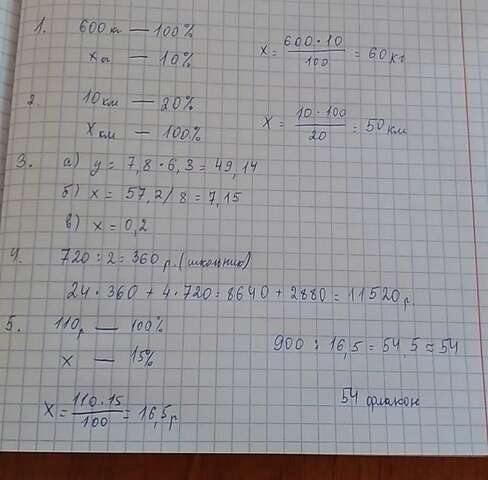 1. 600 кг — 100%
x кг — 10%
x = 600·10 / 100 = 60 кг
2. 10 км — 20%
x км — 100%
x = 10·100 / 20 = 50 км
3. а) y = 7,8 · 6,3 = 49,14
б) x = 57,2/8 = 7,15
в) x = 0,2
4. 720 : 2 = 360 р. (школьник)
24 · 360 + 4 · 720 = 8640 + 2880 = 11520 р
5. 110р — 100%
x — 15%
x = 110·15 / 100 = 16,5 р
900 : 16,5 = 54,5 ≈ 54
54 флакон